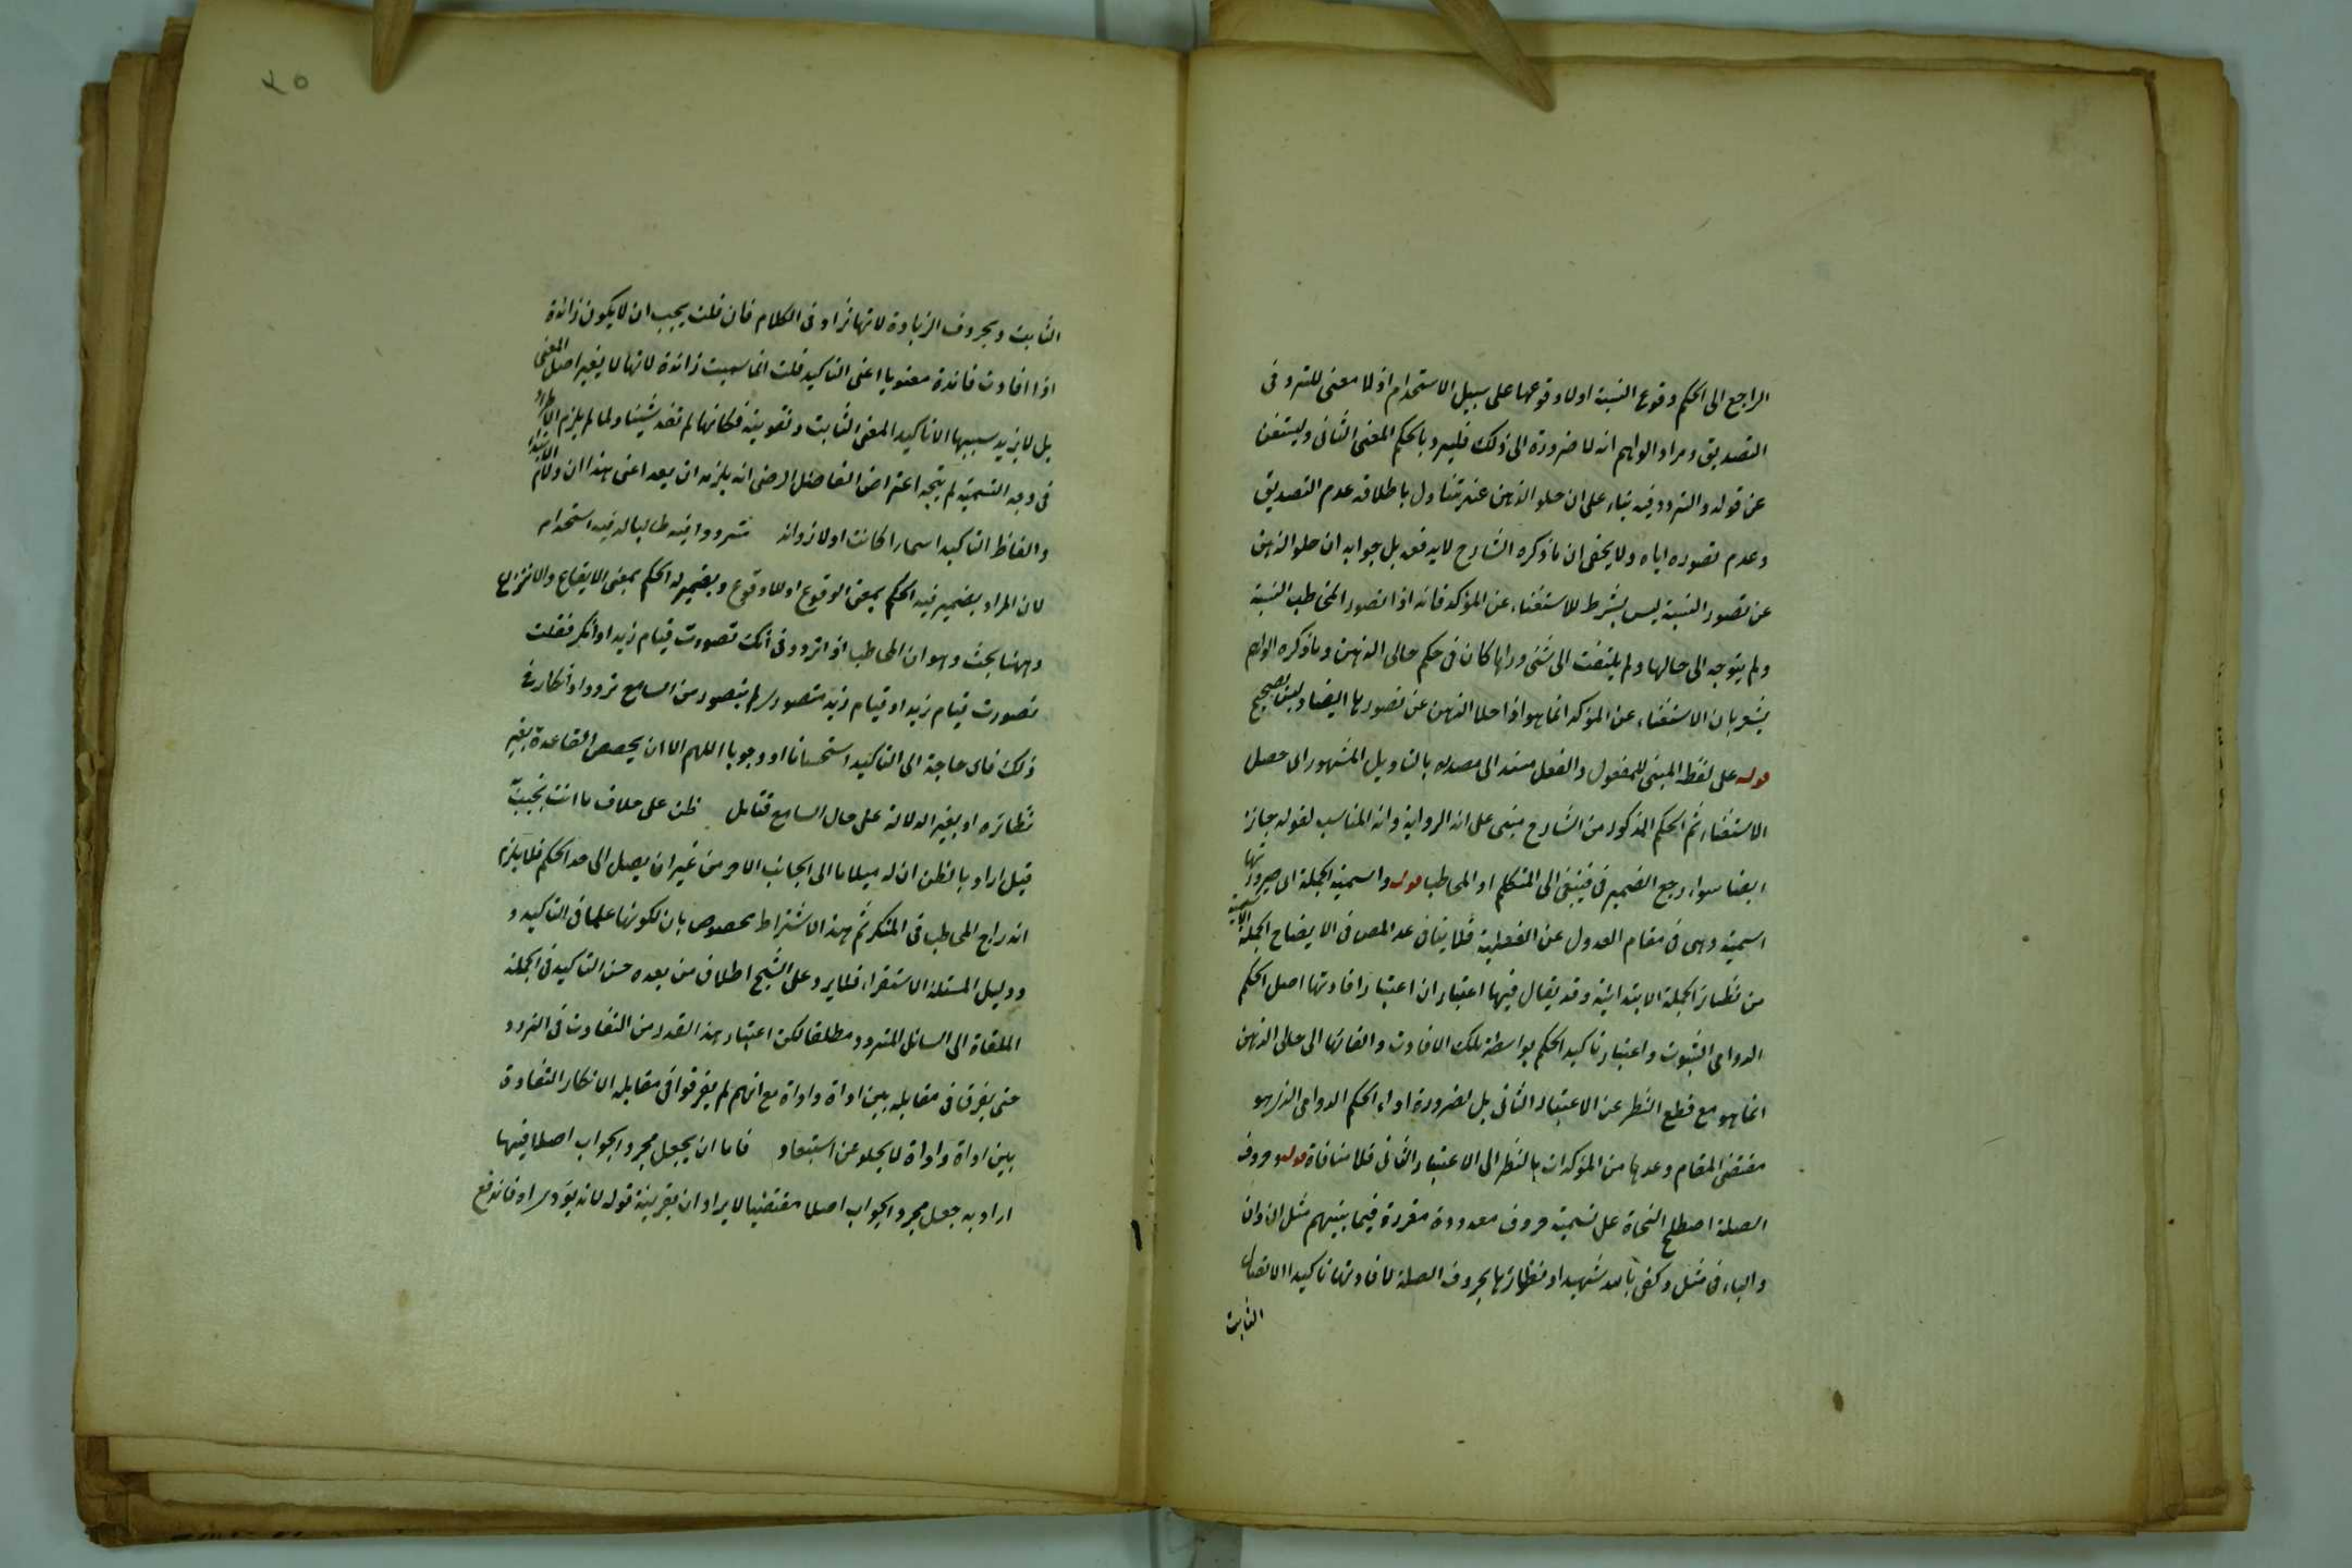 الراجع الى الحكم وقوع النسبة اولا وقوعها على سبيل الاستخدام اذ لا معنى للتردد فى
التصديق ومراد الواهم انه لا ضرورة الى ذلك فليرد بالحكم المعنى الثانى ويستغن
عن قوله والتردد فيه بناء على ان خلو الذهن عنه يتناول باطلاقه عدم التصديق
وعدم تصوره اياه ولا يخفى ان ما ذكره الشارح لا يدفعه بل جوابه ان خلو الذهن
عن تصور النسبة ليس بشرط للاستغناء عن المؤكد فانه اذا تصور المخاطب النسبة
ولم يتوجه الى حالها ولم يلتفت الى شئ وراها كان فى حكم خالى الذهن وما ذكره الواهم
يشعر بان الاستغناء عن المؤكد انما هو اذا خلا الذهن عن تصورها ايضا وليس بصحيح
قوله على لفظ المبنى للمفعول والفعل مسند الى مصدره بالتاويل المشهور اى حصل
الاستغناء ثم الحكم المذكور من الشارح مبنى على انه الرواية وانه المناسب لقوله جاز
ايضا سواء رجع الضمير فى فينبغى الى المتكلم او المخاطب قوله واسمية الجملة اى صيرورتها
اسمية وهى فى مقام العدول عن الفعلية فلا ينافى عد المص فى الايضاح الجملة الاسمية
من نظائر الجملة الابتدائية وقد يقال فيها اعتباران اعتبار افادتها اصل الحكم
الدوامى الثبوت واعتبار تاكيد الحكم بواسطة تلك الافادة والقائها الى خالى الذهن
انما هو مع قطع النظر عن الاعتبار الثانى بل لضرورة اداء الحكم الدوامى الذى هو
مقتضى المقام وعدها من المؤكدات بالنظر الى الاعتبار الثانى فلا منافاة قوله وحروف
الصلة اصطلح النحاة على تسمية حروف معدودة مقررة فيما بينهم مثل ان وان
والباء فى مثل وكفى بالله شهيدا ونظائرها بحروف الصلة لافادتها تاكيدا لاتصال
الثابت
٢٥
الثابت وبحروف الزيادة لانها تزاد فى الكلام فان قلت يجب ان لا يكون زائدة
اذا افادت فائدة معنويا اعنى التاكيد قلت انما سميت زائدة لانها لا يغير اصل المعنى
بل لا يزيد بسببها الا تاكيد المعنى الثابت وتقويته فكانها لم تفد شيئا ولما لم يلزم الاطراد
فى وجه التسمية لم يتجه اعتراض الفاضل الرضى انه يلزمه ان يعد اعنى هذا ان ولام الابتداء
والفاظ التاكيد اسماء كانت اولا زوائد متردد فيه طالبا له فيه استخدام
لان المراد بضمير فيه الحكم بمعنى الوقوع او اللاوقوع وبضمير له الحكم بمعنى الايقاع والانتزاع
وههنا بحث وهو ان المخاطب اذا تردد فى انك تصورت قيام زيد او انكر فقلت
تصورت قيام زيد او قيام زيد متصور لم يتصور من السامع تردد او انكار فى
ذلك فاى حاجة الى التاكيد استحسانا او وجوبا اللهم الا ان يخصص القاعدة بغير
نظائره او بغير الدلالة على حال السامع فتامل ظن على خلاف ما انت تجيبه
قيل اراد بالظن ان له ميلا ما الى الجانب الاخر من غير ان يصل الى حد الحكم فلا يلزم
اندراج المخاطب فى المنكر ثم هذا الاشتراط مخصوص بان لكونها علما فى التاكيد و
ودليل المسئلة الاستقراء فلا يرد على الشيخ اطلاق من بعده حسن التاكيد فى الجملة
الملقاة الى السائل المتردد مطلقا لكن اعتبار هذا القدر من التفاوت فى التردد
حتى يفرق فى مقابله بين اداة واداة مع انهم لم يفرقوا فى مقابله الانكار التفاوة
بين اداة واداة لا يخلو عن استبعاد فاما ان يجعل مجرد الجواب اصلا فيها
اراد به جعل مجرد الجواب اصلا مقتضيا لايراد ان بقرينة قوله لانه يؤدى اه فاندفع